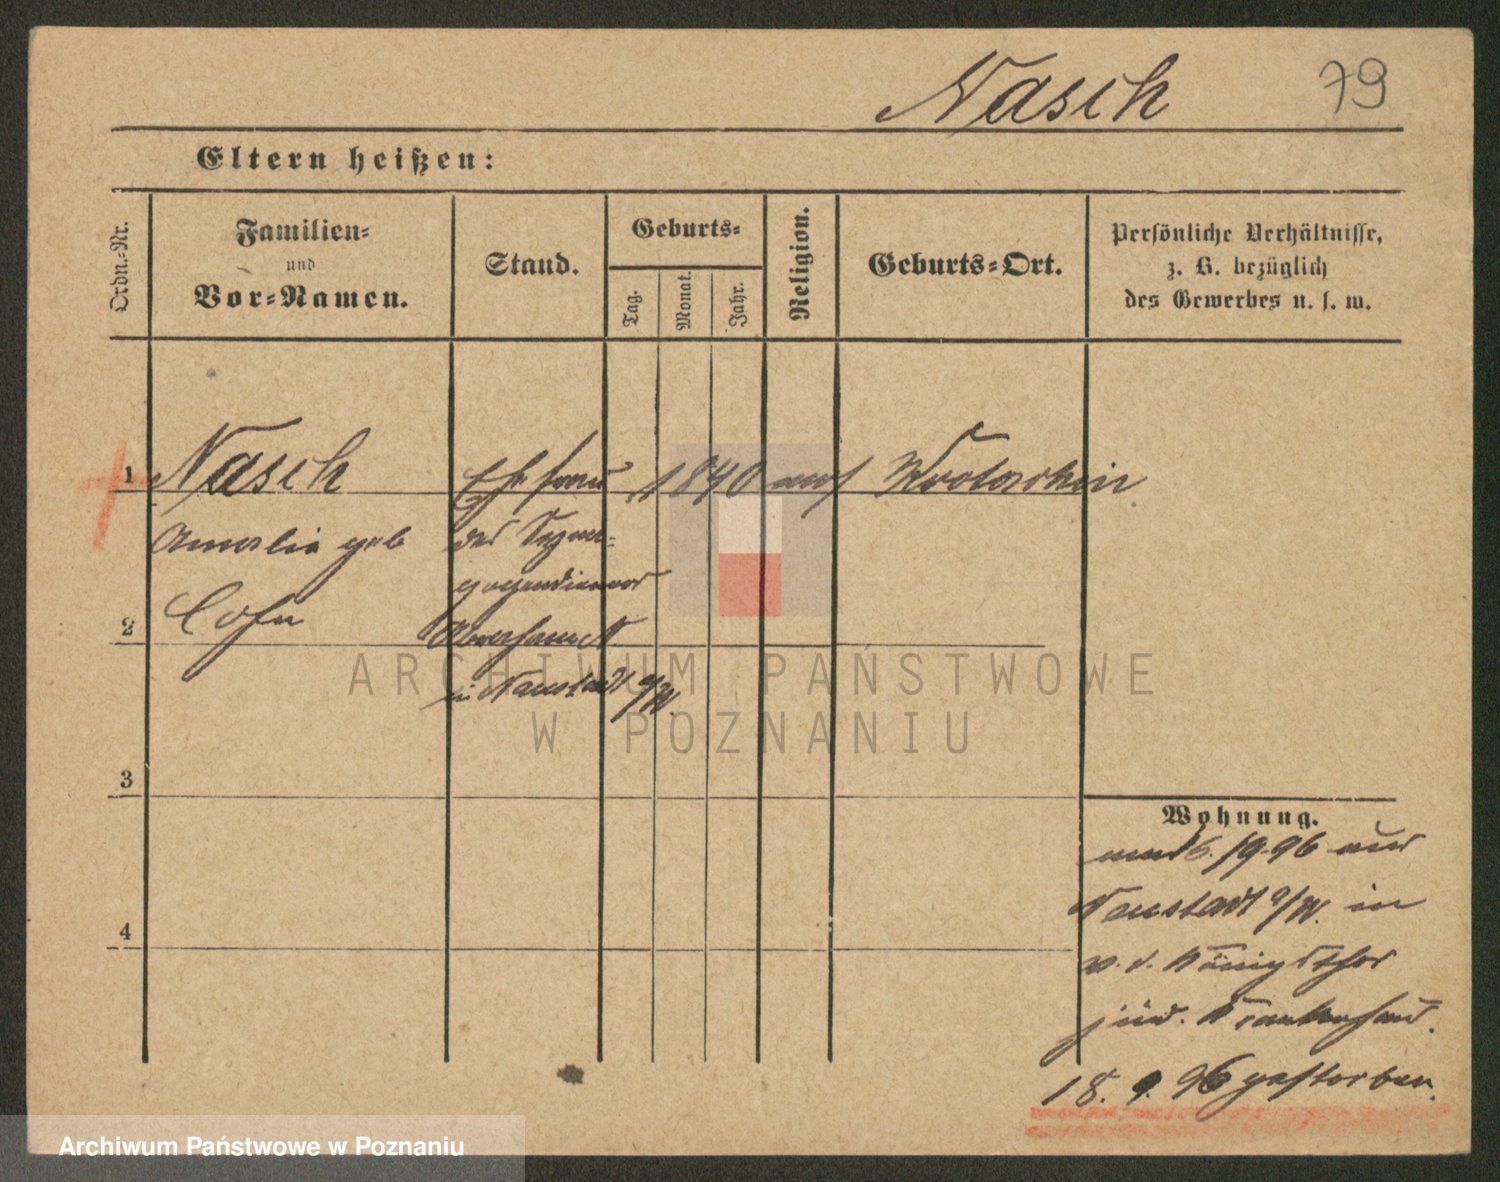 Nasch 79
Eltern heißen:
Ordn.-Nr.
Familien-
und
Vor-Namen.
Stand.
Geburts-
Tag.
Monat.
Jahr.
Religion.
Geburts-Ort.
Persönliche Verhältnisse,
z. B. bezüglich
des Gewerbes u. s. w.
1 Nasch Ehefrau 1840 mos Krotoschin
Amalie geb des Syna-
gogendieners
2 Cohn
in Neustadt a/W.
ARCHIWUM PAŃSTWOWE
W POZNANIU
3
Wohnung.
6./9.96 aus
Neustadt a/W. in
v. d. Königsthor
4
jüd. Krankenhaus.
18. 9. 96 gestorben.
Archiwum Państwowe w Poznaniu